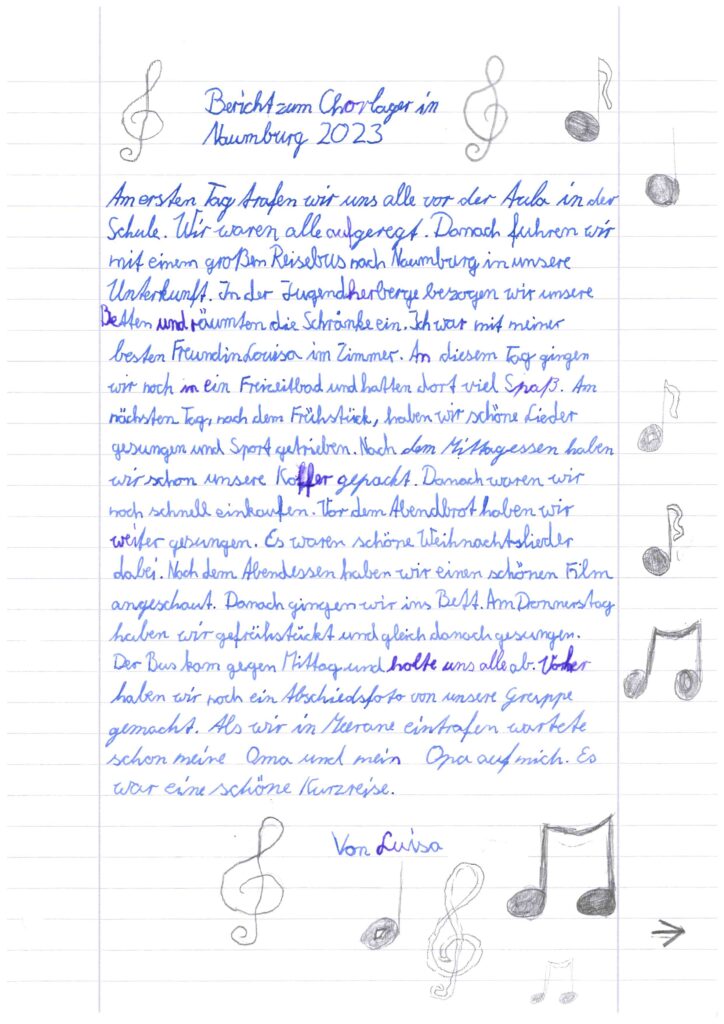 Bericht zum Chorlager in
Naumburg 2023
Am ersten Tag trafen wir uns alle vor der Aula in der
Schule. Wir waren alle aufgeregt. Danach fuhren wir
mit einem großen Reisebus nach Naumburg in unsere
Unterkunft. In der Jugendherberge bezogen wir unsere
Betten und räumten die Schränke ein. Ich war mit meiner
besten Freundin Louisa im Zimmer. An diesem Tag gingen
wir noch in ein Freizeitbad und hatten dort viel Spaß. Am
nächsten Tag, nach dem Frühstück, haben wir schöne Lieder
gesungen und Sport getrieben. Nach dem Mittagessen haben
wir schon unsere Koffer gepackt. Danach waren wir
noch schnell einkaufen. Vor dem Abendbrot haben wir
weiter gesungen. Es waren schöne Weihnachtslieder
dabei. Nach dem Abendessen haben wir einen schönen Film
angeschaut. Danach gingen wir ins Bett. Am Donnerstag
haben wir gefrühstückt und gleich danach gesungen.
Der Bus kam gegen Mittag und holte uns alle ab. Vorher
haben wir noch ein Abschiedsfoto von unsere Gruppe
gemacht. Als wir in Meerane eintrafen wartete
schon meine Oma und mein Opa auf mich. Es
war eine schöne Kurzreise.
Von Luisa